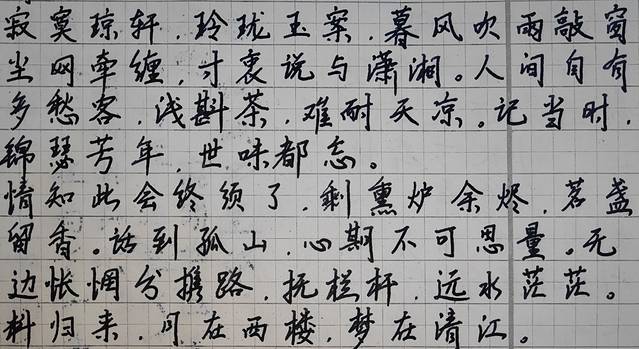 寂寞琼轩，玲珑玉案，暮风吹雨敲窗
尘网牵缠，寸衷说与潇湘。人间自有
多愁客，浅斟茶，难耐天凉。记当时，
锦瑟芳年，世味都忘。
情知此会终须了，剩熏炉余烬，茗盏
留香。话到孤山，心期不可思量。无
边怅惘分携路，抚栏杆，远水茫茫。
料归来，月在西楼，梦在清江。